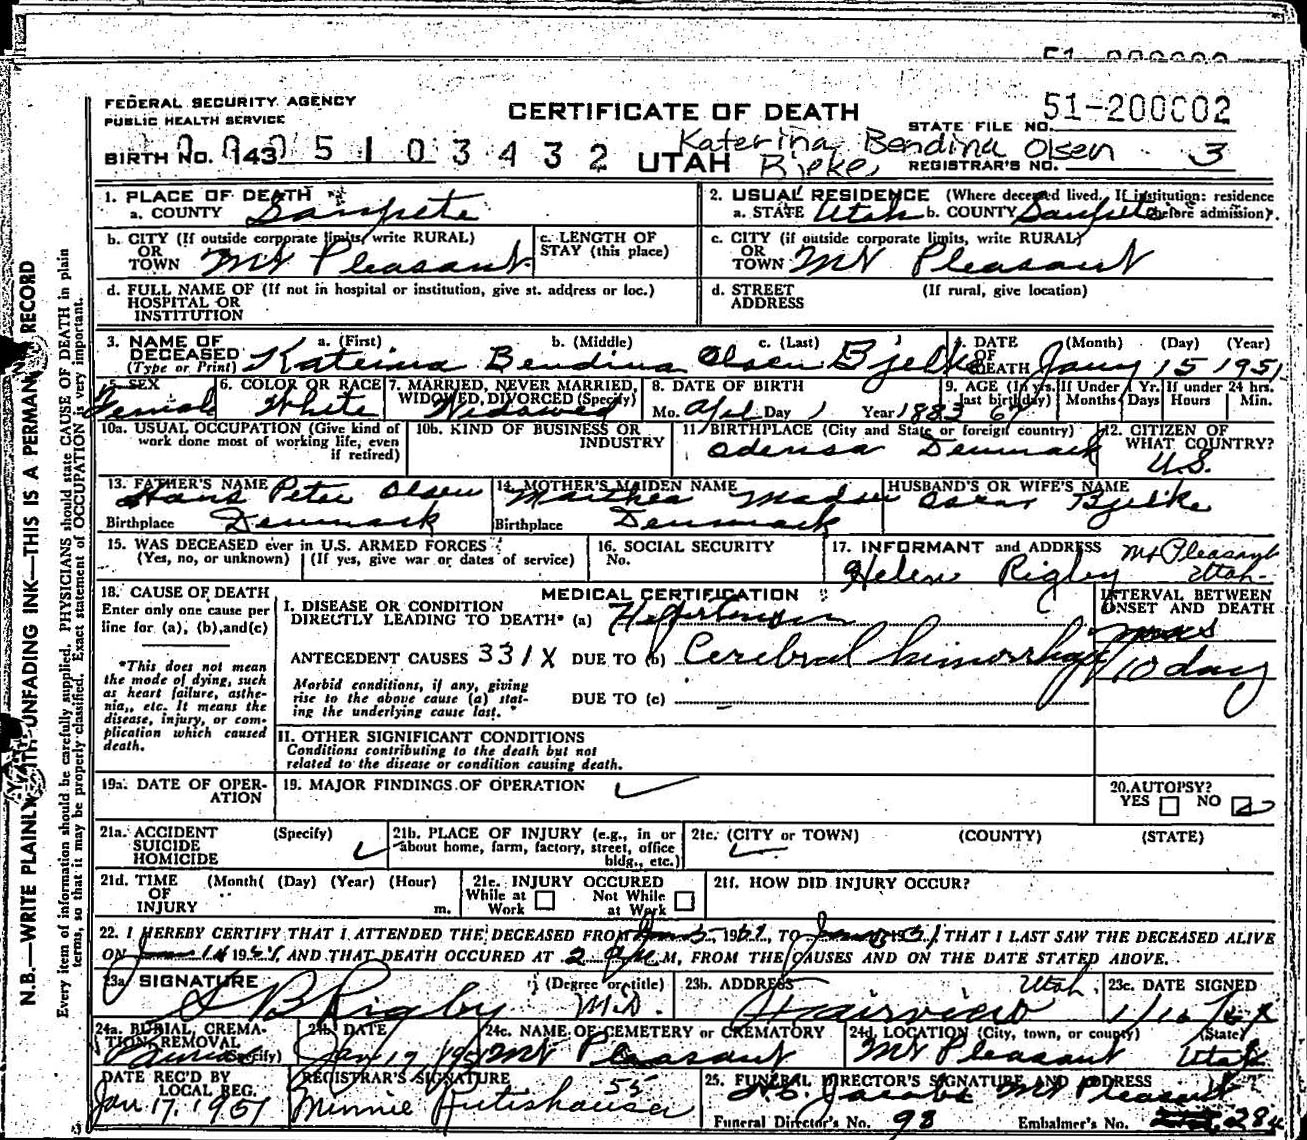 FEDERAL SECURITY AGENCY
PUBLIC HEALTH SERVICE
CERTIFICATE OF DEATH
51-200002
STATE FILE NO.
BIRTH NO. 143
UTAH
Katerina Bendina Olsen
Bjelke
REGISTRAR'S NO. 3
1. PLACE OF DEATH
a. COUNTY Sanpete
2. USUAL RESIDENCE (Where deceased lived. If institution: residence before admission).
a. STATE Utah b. COUNTY Sanpete
b. CITY (If outside corporate limits, write RURAL) OR TOWN Mt Pleasant
c. LENGTH OF STAY (this place)
c. CITY (if outside corporate limits, write RURAL) OR TOWN Mt Pleasant
d. FULL NAME OF (If not in hospital or institution, give st. address or loc.) HOSPITAL OR INSTITUTION
d. STREET ADDRESS (If rural, give location)
3. NAME OF DECEASED (Type or Print) a. (First) b. (Middle) c. (Last)
Katerina Bendina Olsen Bjelke
4. DATE OF DEATH (Month) (Day) (Year)
Jany 15 1951
5. SEX Female
6. COLOR OR RACE White
7. MARRIED, NEVER MARRIED, WIDOWED, DIVORCED (Specify) Widowed
8. DATE OF BIRTH Mo. April Day 1 Year 1883
9. AGE (In yrs. last birthday) 67 If Under 1 Yr. Months Days If under 24 hrs. Hours Min.
10a. USUAL OCCUPATION (Give kind of work done most of working life, even if retired)
10b. KIND OF BUSINESS OR INDUSTRY
11. BIRTHPLACE (City and State or foreign country) Odensa Denmark
12. CITIZEN OF WHAT COUNTRY? U.S.
13. FATHER'S NAME Hans Peter Olsen
Birthplace Denmark
14. MOTHER'S MAIDEN NAME Marthea Madsen
Birthplace Denmark
HUSBAND'S OR WIFE'S NAME Oscar Bjelke
15. WAS DECEASED ever in U.S. ARMED FORCES
(Yes, no, or unknown) (If yes, give war or dates of service)
16. SOCIAL SECURITY No.
17. INFORMANT and ADDRESS Mt Pleasant Utah
Helen Rigby
18. CAUSE OF DEATH
Enter only one cause per line for (a), (b), and (c)
*This does not mean the mode of dying, such as heart failure, asthenia, etc. It means the disease, injury, or complication which caused death.
MEDICAL CERTIFICATION
INTERVAL BETWEEN ONSET AND DEATH
I. DISEASE OR CONDITION DIRECTLY LEADING TO DEATH* (a) Hypertension
ANTECEDENT CAUSES 331X DUE TO (b) Cerebral hemorrhage 10 days
Morbid conditions, if any, giving rise to the above cause (a) stating the underlying cause last.
DUE TO (c)
II. OTHER SIGNIFICANT CONDITIONS
Conditions contributing to the death but not related to the disease or condition causing death.
19a. DATE OF OPERATION
19. MAJOR FINDINGS OF OPERATION
20. AUTOPSY?
YES NO
21a. ACCIDENT SUICIDE HOMICIDE (Specify)
21b. PLACE OF INJURY (e.g., in or about home, farm, factory, street, office bldg., etc.)
21c. (CITY or TOWN) (COUNTY) (STATE)
21d. TIME OF INJURY (Month) (Day) (Year) (Hour) m.
21e. INJURY OCCURED
While at Work Not While at Work
21f. HOW DID INJURY OCCUR?
22. I HEREBY CERTIFY THAT I ATTENDED THE DECEASED FROM TO THAT I LAST SAW THE DECEASED ALIVE
ON AND THAT DEATH OCCURED AT 2 P.M., FROM THE CAUSES AND ON THE DATE STATED ABOVE.
23a. SIGNATURE (Degree or title) Rigby M.D.
23b. ADDRESS Fairview Utah
23c. DATE SIGNED
24a. BURIAL, CREMATION, REMOVAL (Specify) Burial
24b. DATE Jan 17 1951
24c. NAME OF CEMETERY or CREMATORY Mt Pleasant
24d. LOCATION (City, town, or county) (State) Mt Pleasant Utah
DATE REC'D BY LOCAL REG. Jan. 17, 1951
REGISTRAR'S SIGNATURE 55
Minnie
25. FUNERAL DIRECTOR'S SIGNATURE AND ADDRESS
Jacobs Mt Pleasant
Funeral Director's No. 98 Embalmer's No.
N.B.—WRITE PLAINLY WITH UNFADING INK—THIS IS A PERMANENT RECORD
Every item of information should be carefully supplied. PHYSICIANS should state CAUSE OF DEATH in plain
terms, so that it may be properly classified. Exact statement of OCCUPATION is very important.